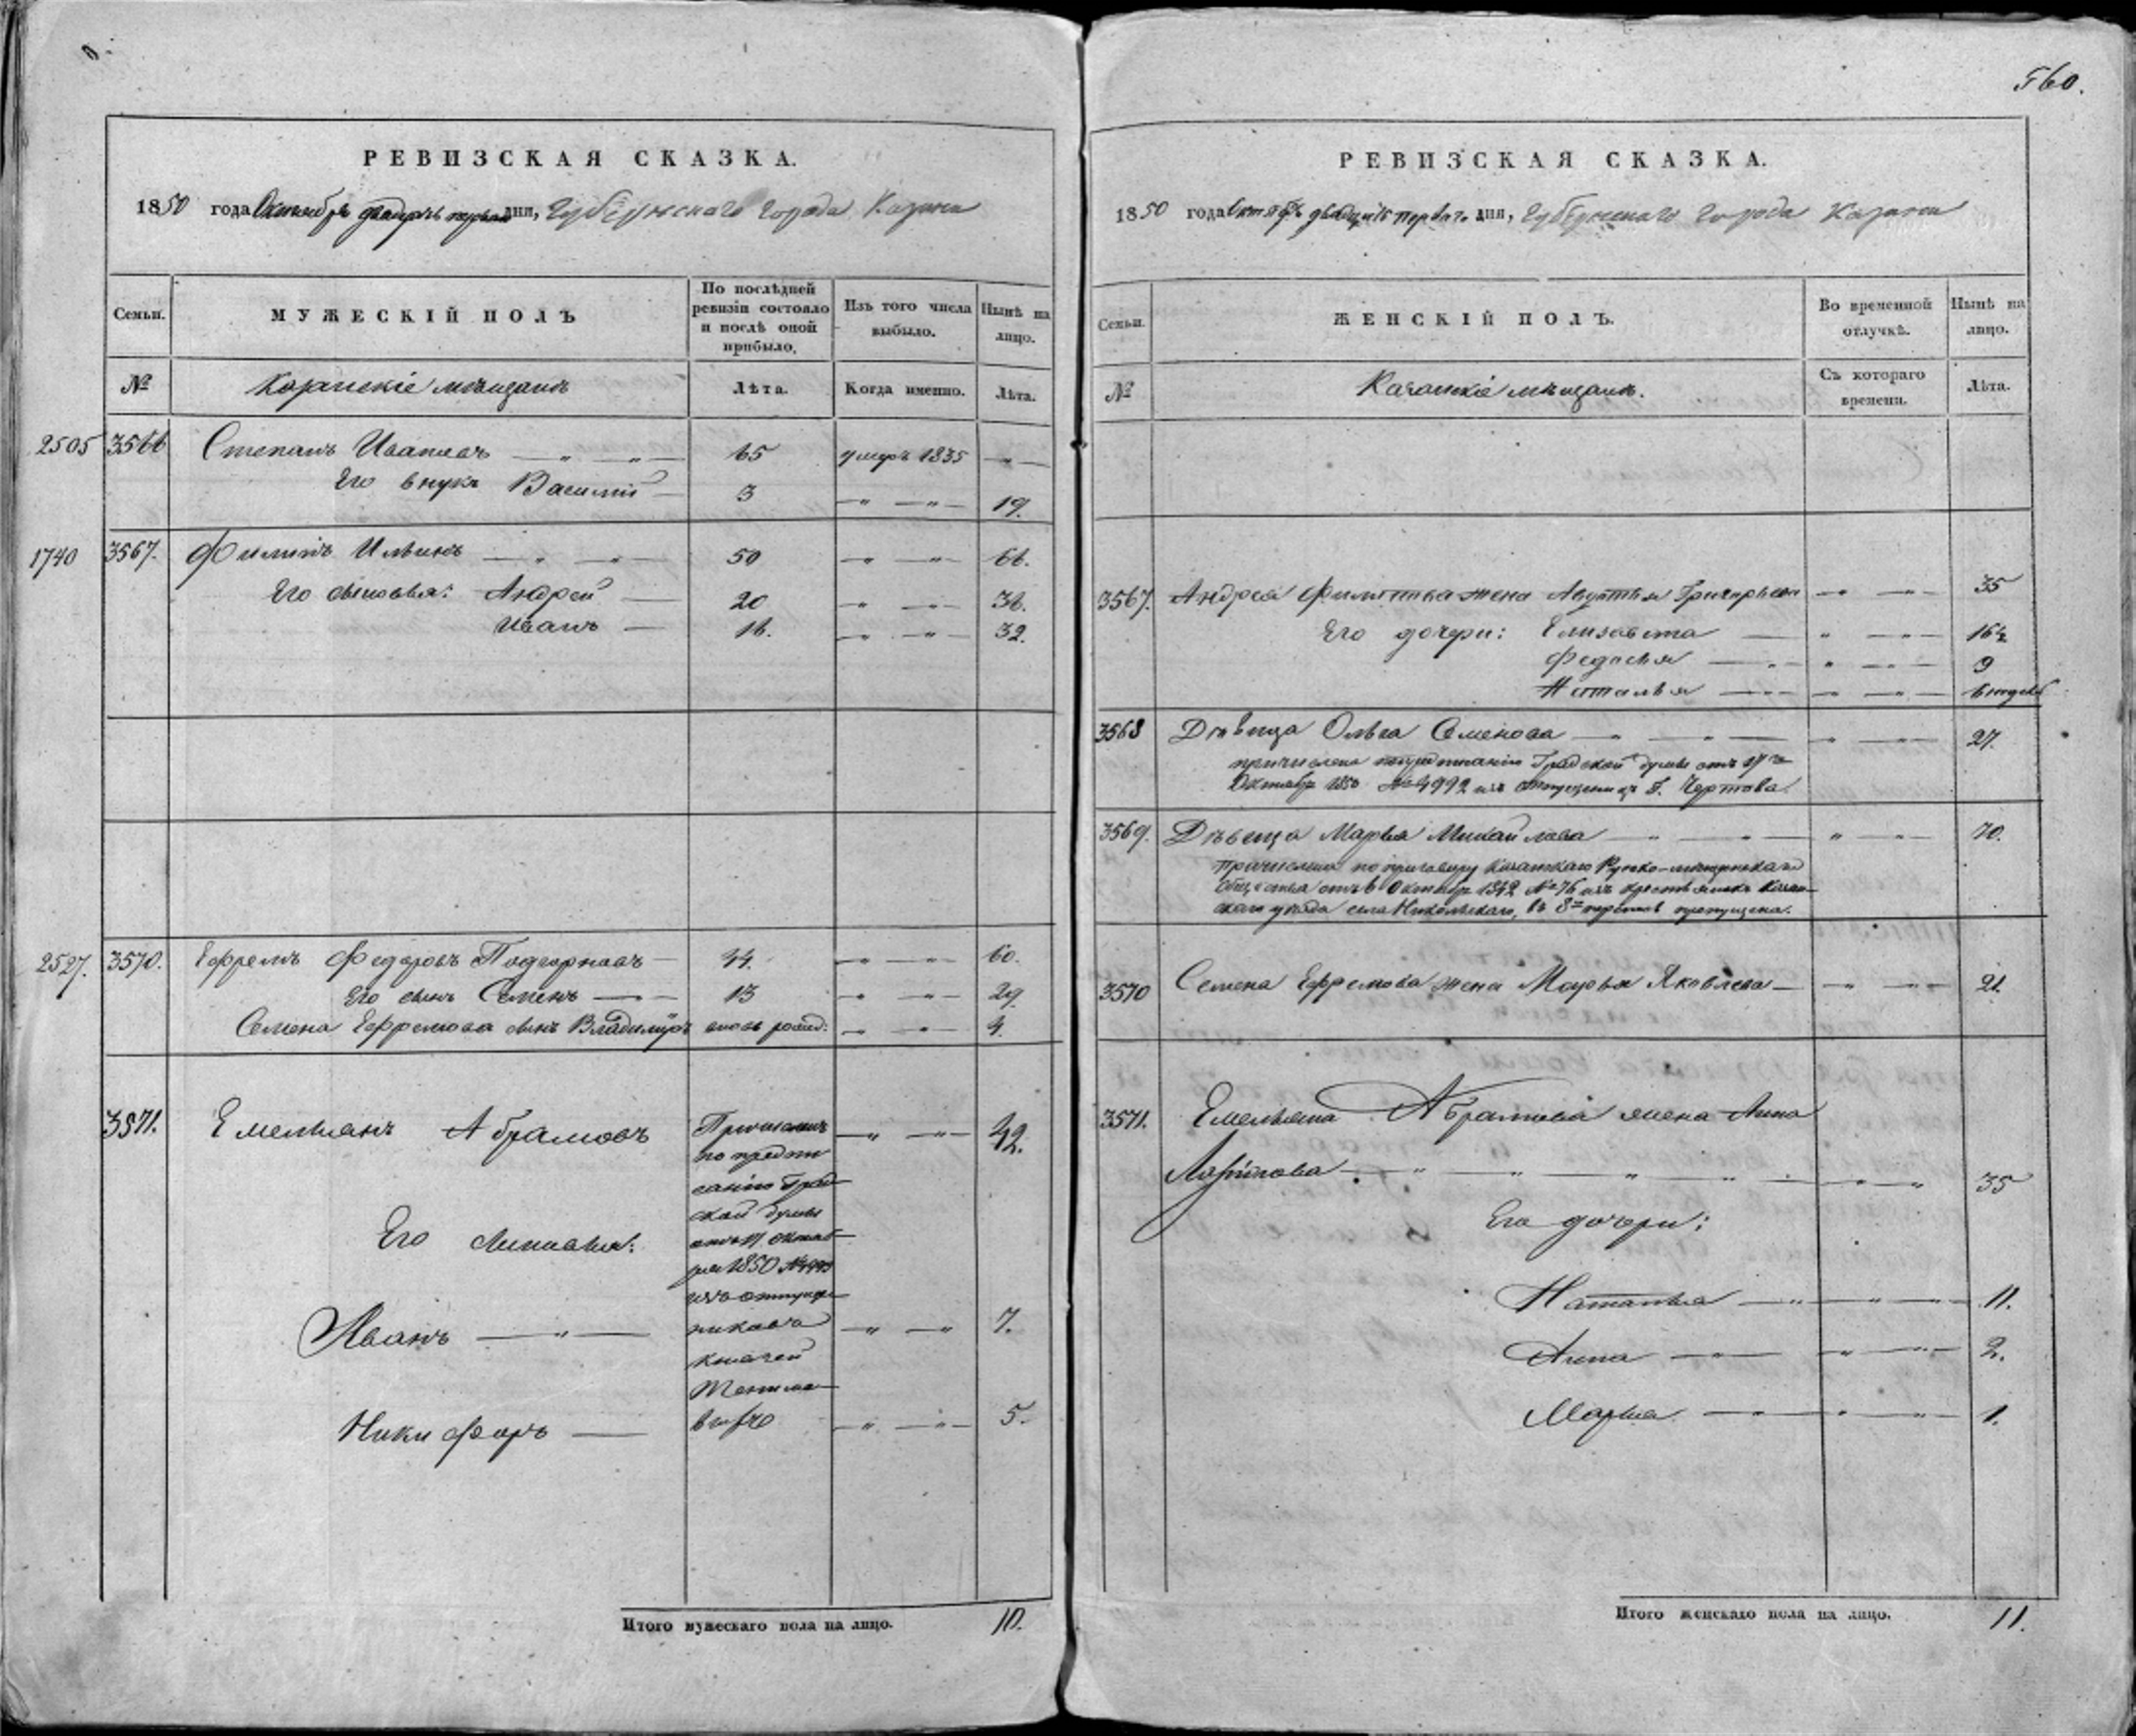 560.
РЕВИЗСКАЯ СКАЗКА.
1850 года Октября двадцать первого дня, Губернского города Казани
Семьи.
МУЖЕСКІЙ ПОЛЪ
По послѣдней ревизіи состояло и послѣ оной прибыло.
Изъ того числа выбыло.
Нынѣ на лицо.
№
Казанскіе мѣщане
Лѣта.
Когда именно.
Лѣта.
2505 3566 Степанъ Ивановъ — „ — „ — 65 умеръ 1835 — „ —
Его внукъ Василій — 3 — „ — „ — 19.
1740 3567. Филипъ Ильинъ — „ — „ — 50 — „ — „ — 66.
Его сыновья: Андрей — 20 — „ — „ — 36.
Иванъ — 16. — „ — „ — 32.
2527. 3570. Ефремъ Федоровъ Подгорновъ — 44. — „ — „ — 60.
Его сынъ Семенъ — „ — 13 — „ — „ — 29.
Семена Ефремова сынъ Владимiръ вновь рожд: — „ — „ — 4.
3571. Емельянъ Абрамовъ Причисленъ — „ — „ — 42.
по предпи
санію Град
ской думы
Его сыновья: отъ 17 октяб
ря 1850 №
изъ отпуще
Иванъ — „ — никовъ — „ — „ — 7.
Никифоръ — — „ — „ — 5.
Итого мужескаго пола на лицо. 10.
РЕВИЗСКАЯ СКАЗКА.
1850 года Октября двадцать перваго дня, Губернскаго города Казани
Семьи.
ЖЕНСКІЙ ПОЛЪ.
Во временной отлучкѣ.
Нынѣ на лицо.
№
Казанскіе мѣщане.
Съ котораго времени.
Лѣта.
3567. Андрея Филипова жена Авдотья Григорьева — „ — „ — 35
Его дочери: Елизавета — „ — „ — 16½
Федосья — „ — „ — „ — 9
Наталья — „ — „ — „ — 6 недѣль
3568 Дѣвица Ольга Семенова — „ — „ — „ — „ — 27.
причислена по предписанію Градской думы отъ 17го
Октября 1850 № 4992 изъ отпущениц Г. Чертова.
3569. Дѣвица Марья Михайлова — „ — „ — „ — „ — 70.
Причислена по приговору Казанскаго Русско-мѣщанскаго
Общества отъ 6 Октября 1842 № 76 изъ крестьянокъ Казан-
скаго уѣзда села Никольскаго, въ 8ю перепись пропущена.
3570 Семена Ефремова жена Марья Яковлева — „ — „ — 21.
3571. Емельяна Абрамова жена Анна
— „ — „ — „ — „ — „ — „ 35
Его дочери:
Наталья — „ — „ — „ — 11.
Анна — „ — „ — „ — 2.
Марья — „ — „ — „ — 1.
Итого женскаго пола на лицо. 11.